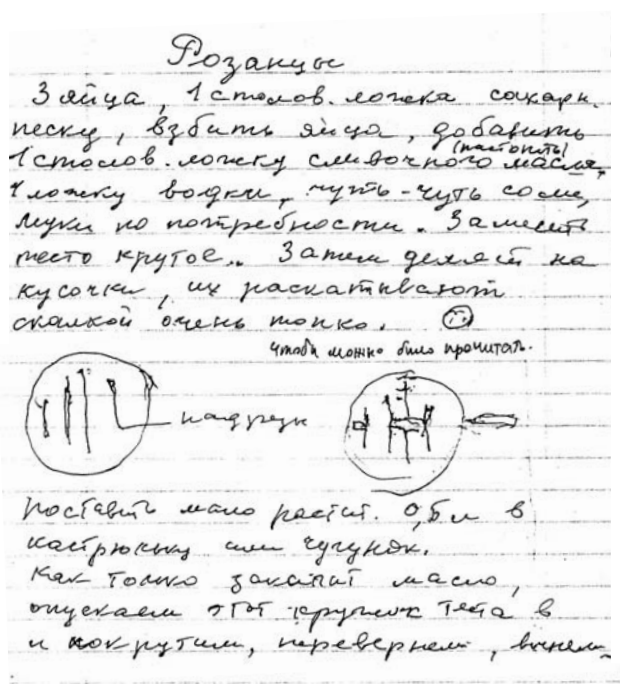 Розанцы
3 яйца, 1 столов. ложка сахарн.
песку, взбить яйца, добавить
(растопить)
1 столов. ложку сливочного масла,
1 ложку водки, чуть-чуть соли,
муки по потребности. Замесить
тесто крутое.. Затем делят на
кусочки, их раскатывают
скалкой очень тонко.
чтобы можно было прочитать.
надрезы
поставить масло растит. 0,5 л в
кастрюльку или чугунок.
Как только закипит масло,
опускаем этот кружок теста в
и покрутим, перевернем, вынем